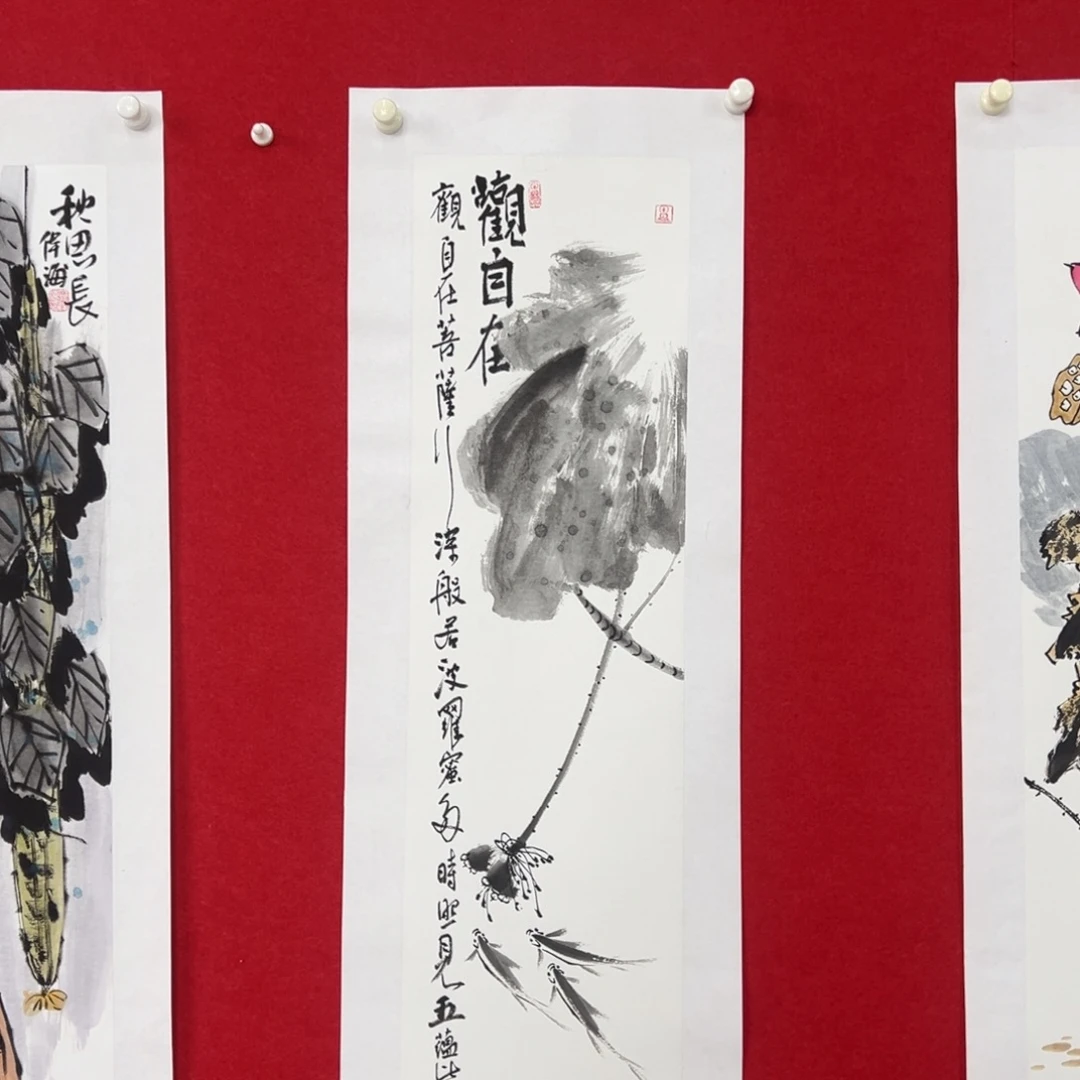 觀自在
觀自在菩薩行深般若波羅蜜多時照見五蘊
秋思長